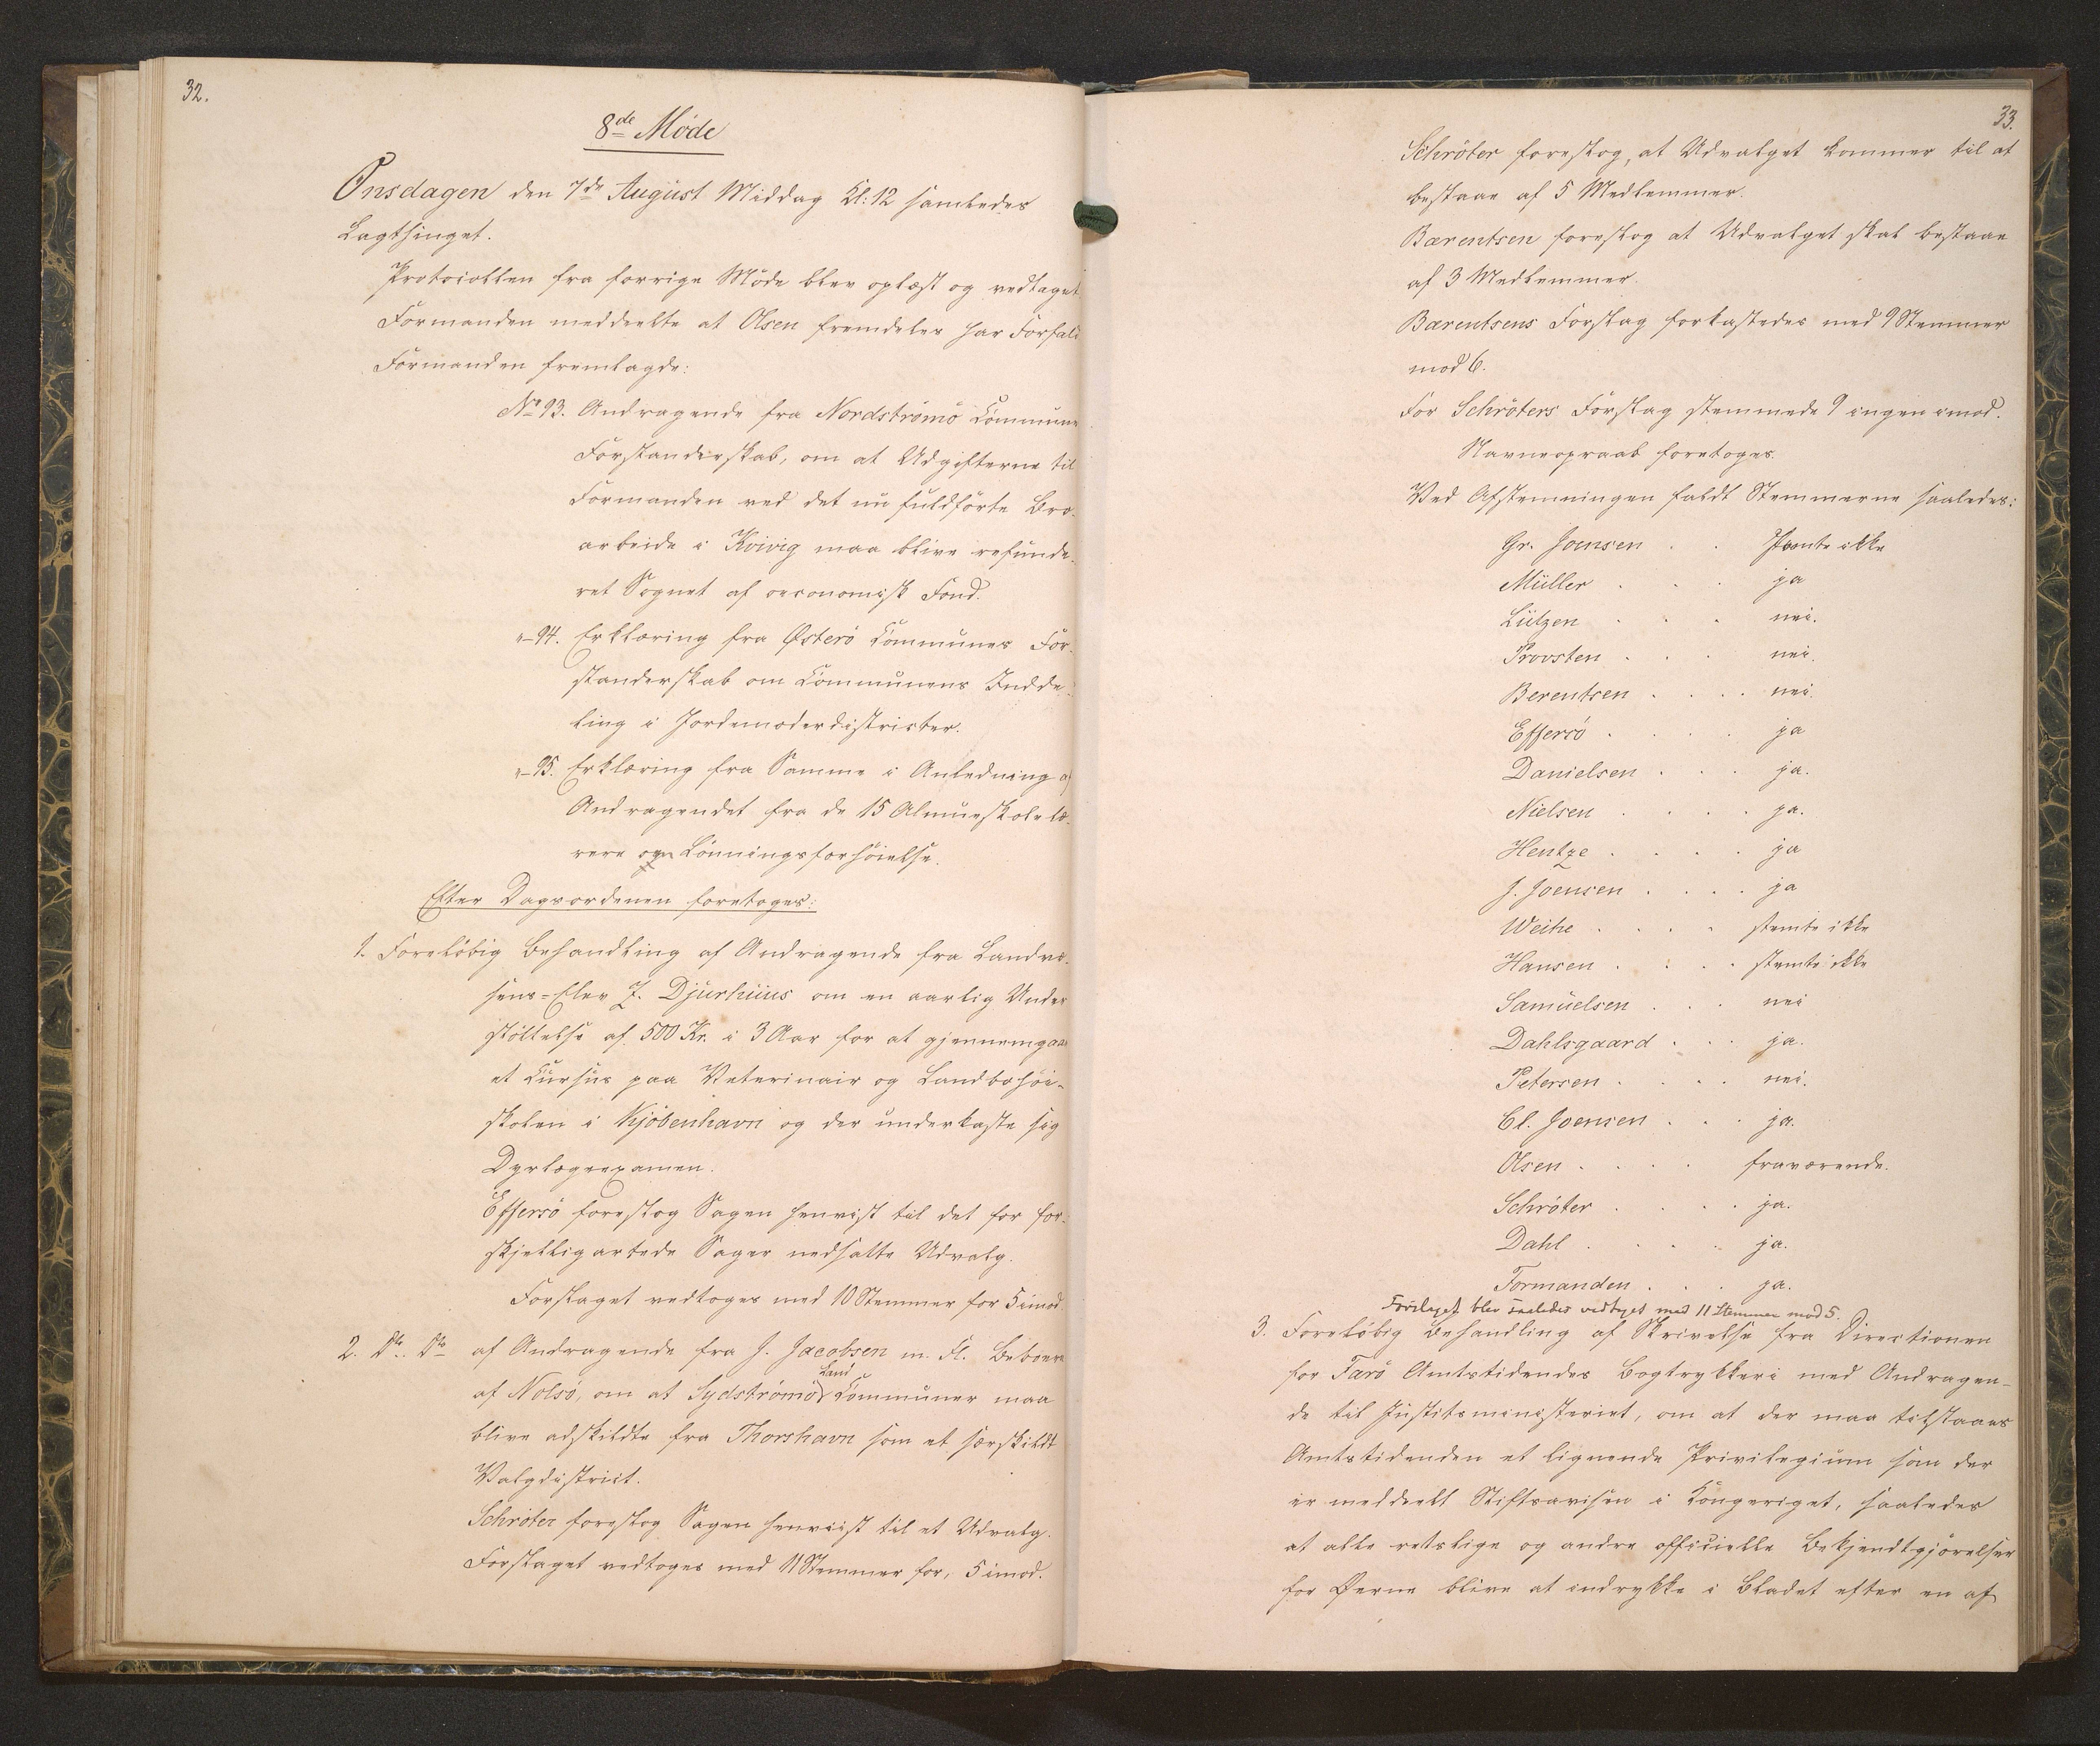 32.
8de Møde
Onsdagen den 7de August Middag Kl: 12 samledes
Lagthinget.
Protocollen fra forrige Møde blev oplæst og vedtaget
Formanden meddeelte at Olsen fremdeles har Forfald
Formanden fremlagde:
No 93. Andragende fra Nordströmö Kommune
Forstanderskab, om at Udgifterne til
Formanden ved det nu fuldförte Bro-
arbeide i Kvivig maa blive refunde-
ret Sognet af oeconomisk Fond.
"- 94. Erklæring fra Østerö Kommunes For-
standerskab om Kommunens Indde-
ling i Jordemoderdistricter.
"- 95. Erklæring fra Samme i Anledning af
Andragendet fra de 15 Almueskolelæ-
rere om Lönningsforhöielse.
Efter Dagsordenen foretoges:
1. Forelöbig Behandling af Andragende fra Landvæ-
sens-Elev Z. Djurhuus om en aarlig Under
stöttelse af 500 Kr. i 3 Aar for at gjennemgaae
et Kursus paa Veterinair og Landbohöi-
skolen i Kjöbenhavn og der underkaste sig
Dyrlægeexamen.
Effersö foreslog Sagen henvist til det for for-
skjelligartede Sager nedsatte Udvalg.
Forslaget vedtoges med 10 Stemmer for 5 imod.
2. Do. Do af Andragende fra J. Jacobsen m. Fl. Beboere
Land
af Nolsö, om at Sydströmö Kommuner maa
blive adskildte fra Thorshavn som et særskildt
Valgdistrict.
Schröter foreslog Sagen henviist til et Udvalg.
Forslaget vedtoges med 11 Stemmer for, 5 imod.
33.
Schröter foreslog, at Udvalget kommer til at
bestaae af 5 Medlemmer.
Bærentsen foreslog at Udvalget skal bestaae
af 3 Medlemmer.
Bærentsens Forslag forkastedes med 9 Stemmer
mod 6.
For Schröters Forslag stemmede 9 ingen imod.
Navneopraab foretoges.
Ved Afstemningen faldt Stemmerne saaledes:
Gr. Joensen . . stemte ikke
Müller . . . ja
Lützen . . . nei.
Provsten . . . nei.
Berentsen . . . . nei.
Effersö . . . . ja
Danielsen . . . ja.
Nielsen . . . . ja.
Hentze . . . . ja
J. Joensen . . . . ja
Weihe . . . . stemte ikke
Hansen . . . . stemte ikke
Samuelsen . . . nei
Dahlsgaard . . . ja.
Petersen . . . . nei.
Cl. Joensen . . . ja.
Olsen . . . . fraværende.
Schröter . . . . ja.
Dahl . . . . ja.
Formanden . . . ja.
Forslaget blev saaledes vedtaget med 11 Stemmer mod 5.
3. Forelöbig Behandling af Skrivelse fra Directionen
for Færö Amtstidendes Bogtrykkeri med Andragen-
de til Justitsministeriet, om at der maa tilstaaes
Amtstidenden et lignende Privilegium som der
er meddeelt Stiftsavisen i Kongeriget, saaledes
at alle retslige og andre officielle Bekjendtgjörelser
for Øerne blive at indrykke i Bladet efter en af